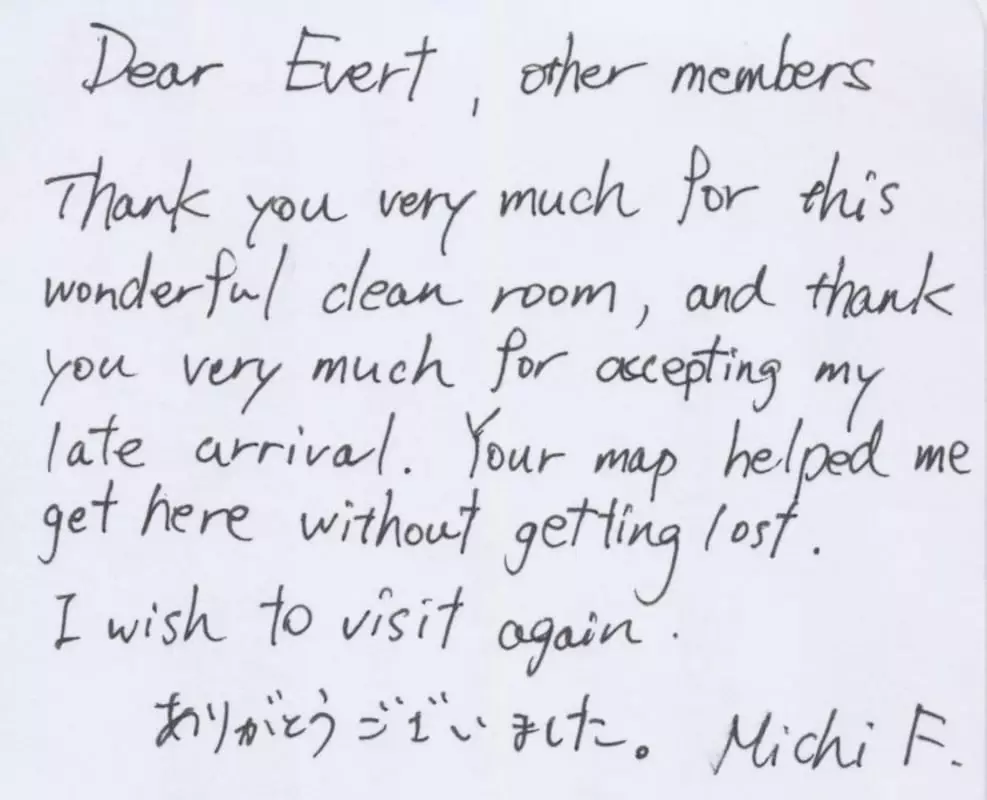 Dear Evert, other members
Thank you very much for this
wonderful clean room, and thank
you very much for accepting my
late arrival. Your map helped me
get here without getting lost.
I wish to visit again.
ありがとうございました。 Michi F.